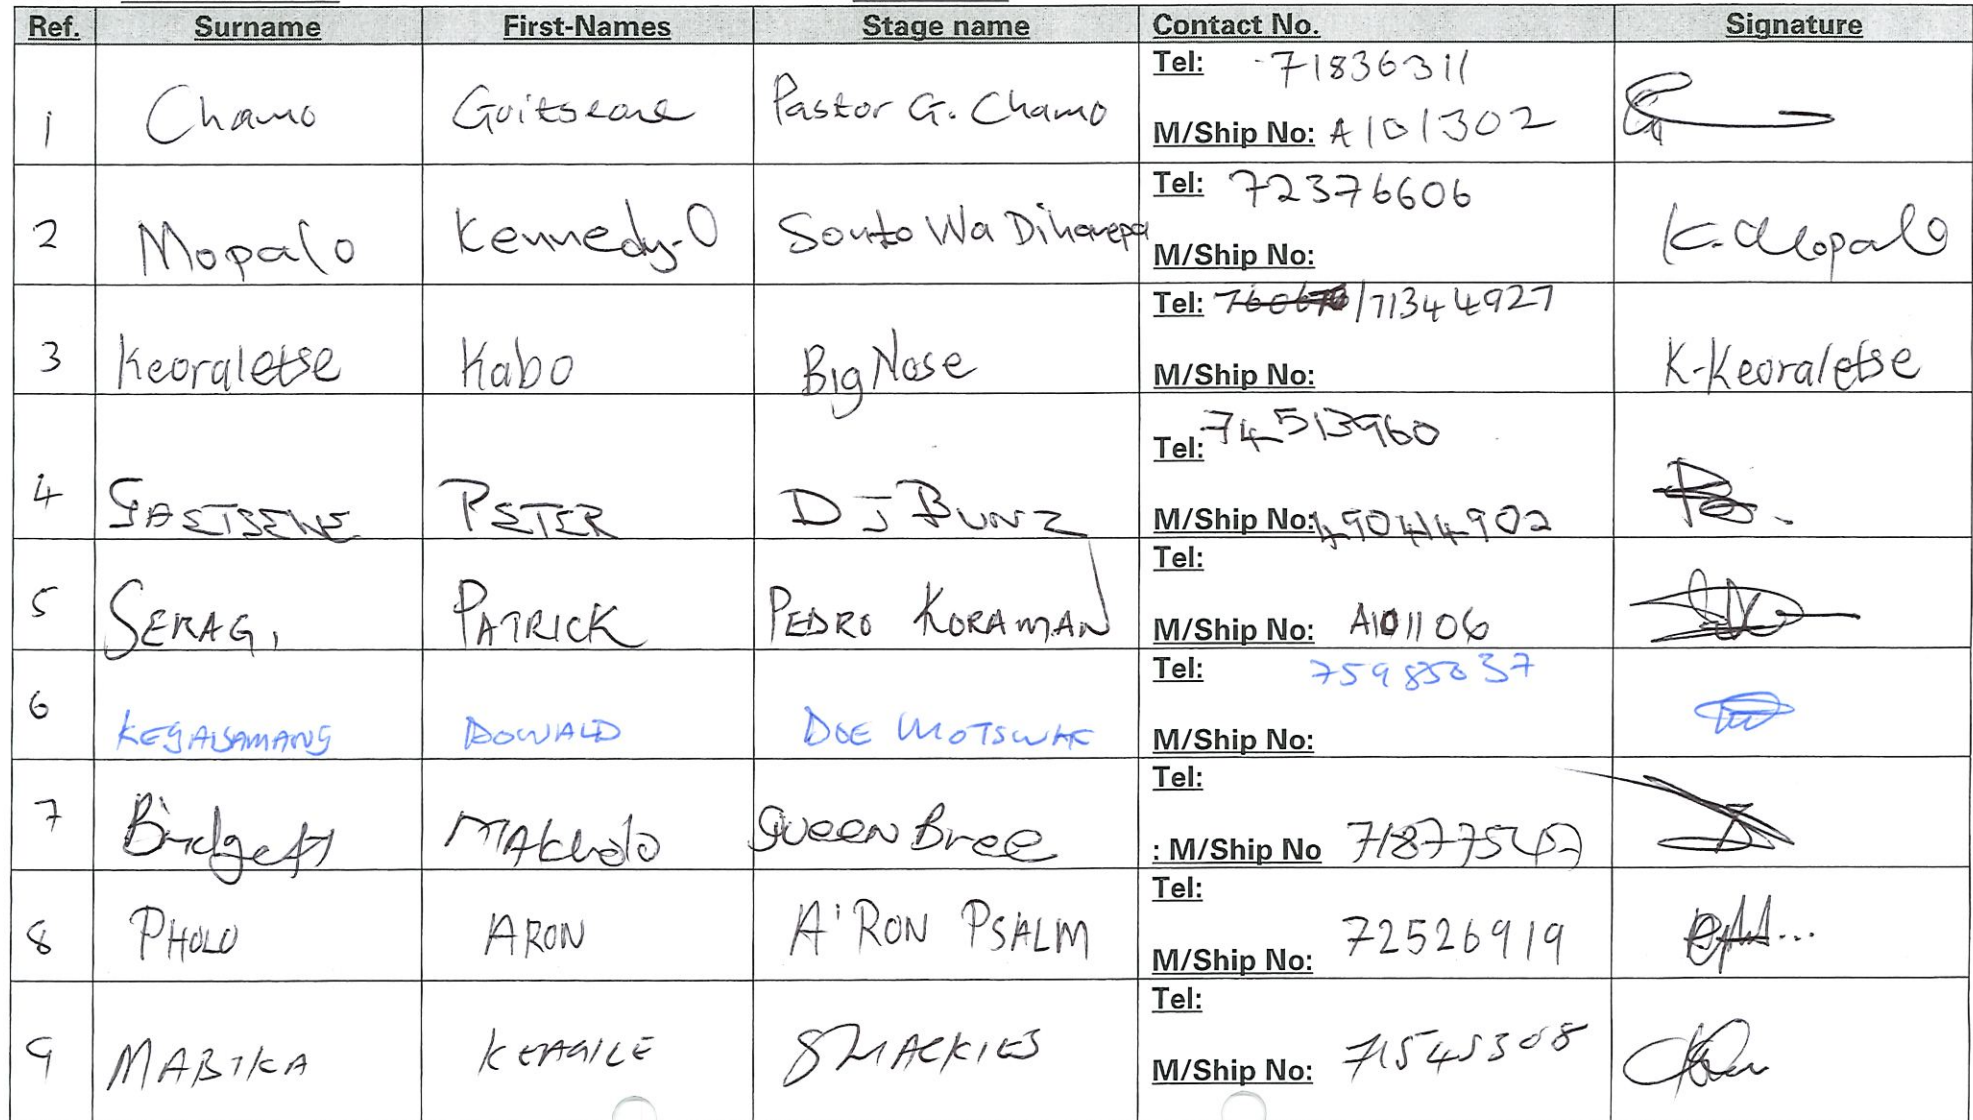 Ref. Surname First-Names Stage name Contact No. Signature
1 Chamo Goitseone Pastor G. Chamo Tel: 71836311
M/Ship No: A101302
2 Mopalo Kennedy-O Sonto Wa Diharepa Tel: 72376606 K. Mopalo
M/Ship No:
3 Keoraletse Kabo Big Nose Tel: /71344927 K-Keoraletse
M/Ship No:
4 GAETSEWE PETER DJ BUNZ Tel: 74513960
M/Ship No: 490414902
5 SERAGI PATRICK PEDRO KORAMAN Tel:
M/Ship No: A101106
6 DONALD DOE MOTSWAK Tel: 75985037
M/Ship No:
7 Bridgett MAkholo QUEEN Bree Tel:
: M/Ship No
8 PHOLO ARON A'RON PSALM Tel:
M/Ship No: 72526919
9 MABIKA KEAGILE SMACKIES Tel:
M/Ship No: 71545308